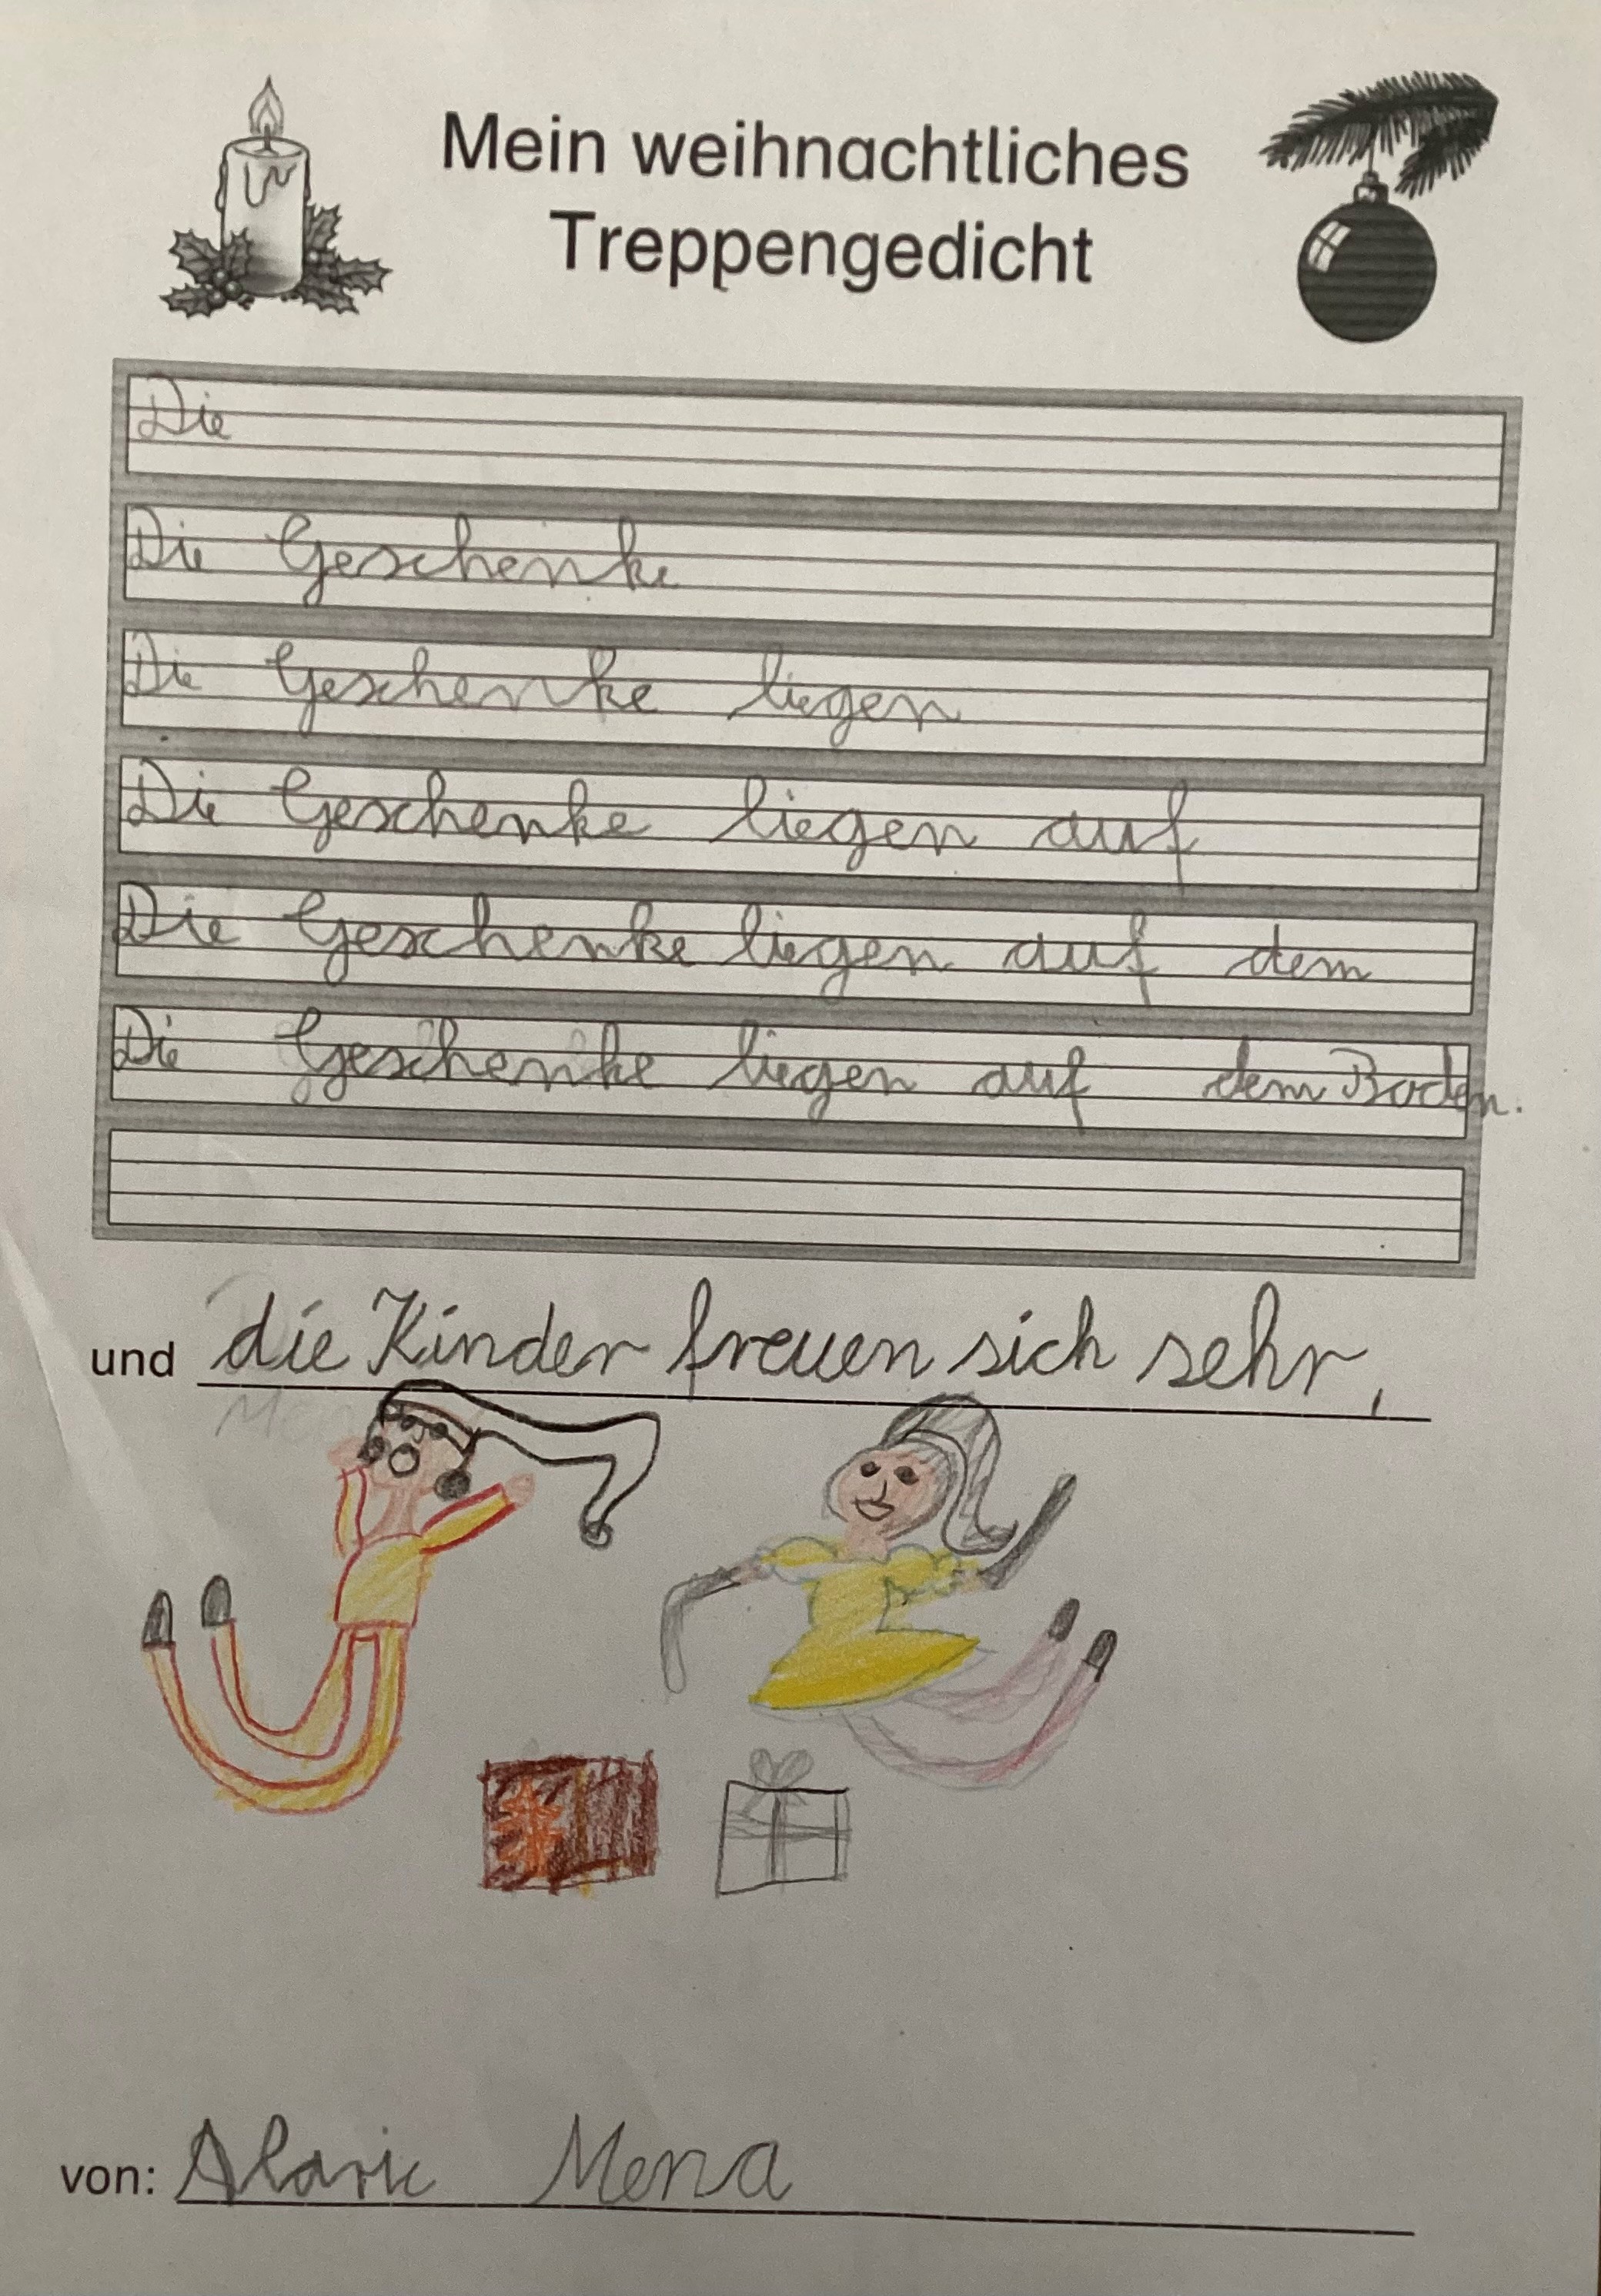 Mein weihnachtliches
Treppengedicht
Die
Die Geschenke
Die Geschenke liegen
Die Geschenke liegen auf
Die Geschenke liegen auf dem
Die Geschenke liegen auf dem Boden.
und die Kinder freuen sich sehr,
von: Alaric Mena